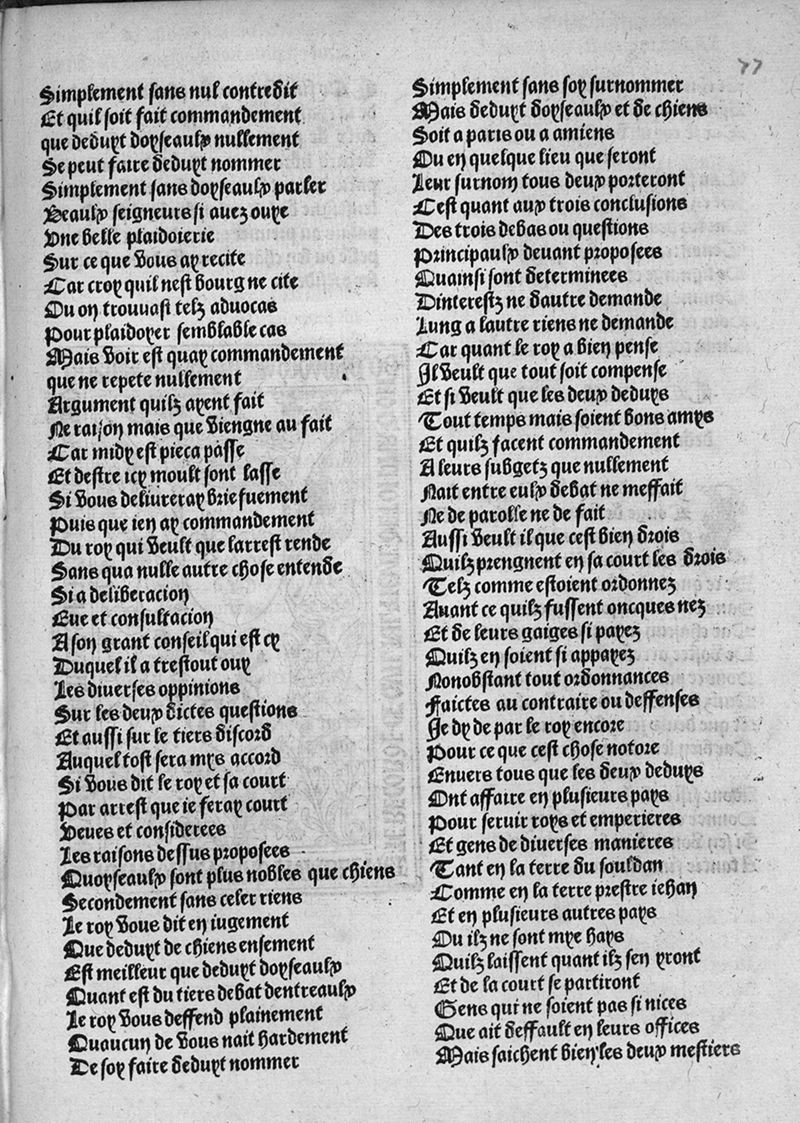 77
Simplement sans nul contredit
Et quil soit fait commandement
que deduyt doyseaulx nullement
Se peut faire deduyt nommer
Simplement sans doyseaulx parler
Beaulx seigneurs si auez ouye
vne belle plaidoierie
Sur ce que vous ay recite
Car croy quil nest bourg ne cite
Ou on trouuast telz aduocas
Pour plaidoyer semblable cas
Mais voir est quay commandement
que ne repete nullement
Argument quilz ayent fait
Ne raison mais que viengne au fait
Car midy est pieca passe
Et destre icy moult sont lasse
Si vous deliureray briefuement
Puis que ien ay commandement
Du roy qui veult que larrest rende
Sans qua nulle autre chose entende
Si a deliberacion
Eue et consultacion
A son grant conseil qui est cy
Duquel il a trestout ouy
Les diuerses oppinions
Sur les deux dictes questions
Et aussi sur le tiers discord
Auquel tost sera mys accord
Si vous dit le roy et sa court
Par arrest que ie feray court
Veues et considerees
Les raisons dessus proposees
Quoyseaulx sont plus nobles que chiens
Secondement sans celer riens
Le roy vous dit en iugement
Que deduyt de chiens ensement
Est meilleur que deduyt doyseaulx
Quant est du tiers debat dentreaulx
Le roy vous deffend plainement
Quaucun de vous nait hardement
De soy faire deduyt nommer
Simplement sans soy surnommer
Mais deduyt doyseaulx et de chiens
Soit a paris ou a amiens
Ou en quelque lieu que seront
Leur surnom tous deux porteront
Cest quant aux trois conclusions
Des trois debas ou questions
Principaulx deuant proposees
Quainsi sont determinees
Dinterestz ne dautre demande
Lung a lautre riens ne demande
Car quant le roy a bien pense
Il veult que tout soit compense
Et si veult que les deux deduys
Tout temps mais soient bons amys
Et quilz facent commandement
A leurs subgetz que nullement
Nait entre eulx debat ne meffait
Ne de parolle ne de fait
Aussi veult il que cest bien drois
Quilz prengnent en sa court les drois
Telz comme estoient ordonnez
Auant ce quilz fussent oncques nez
Et de leurs gaiges si payez
Quilz en soient si appayez
Nonobstant tout ordonnances
Faictes au contraire ou deffenses
Je dy de par le roy encore
Pour ce que cest chose notore
Enuers tous que les deux deduys
Ont affaire en plusieurs pays
Pour seruir roys et emperieres
Et gens de diuerses manieres
Tant en la terre du souldan
Comme en la terre prestre iehan
Et en plusieurs autres pays
Ou ilz ne sont mye hays
Quilz laissent quant ilz sen yront
Et de la court se partiront
Gens qui ne soient pas si nices
Que ait deffault en leurs offices
Mais saichent bien les deux mestiers